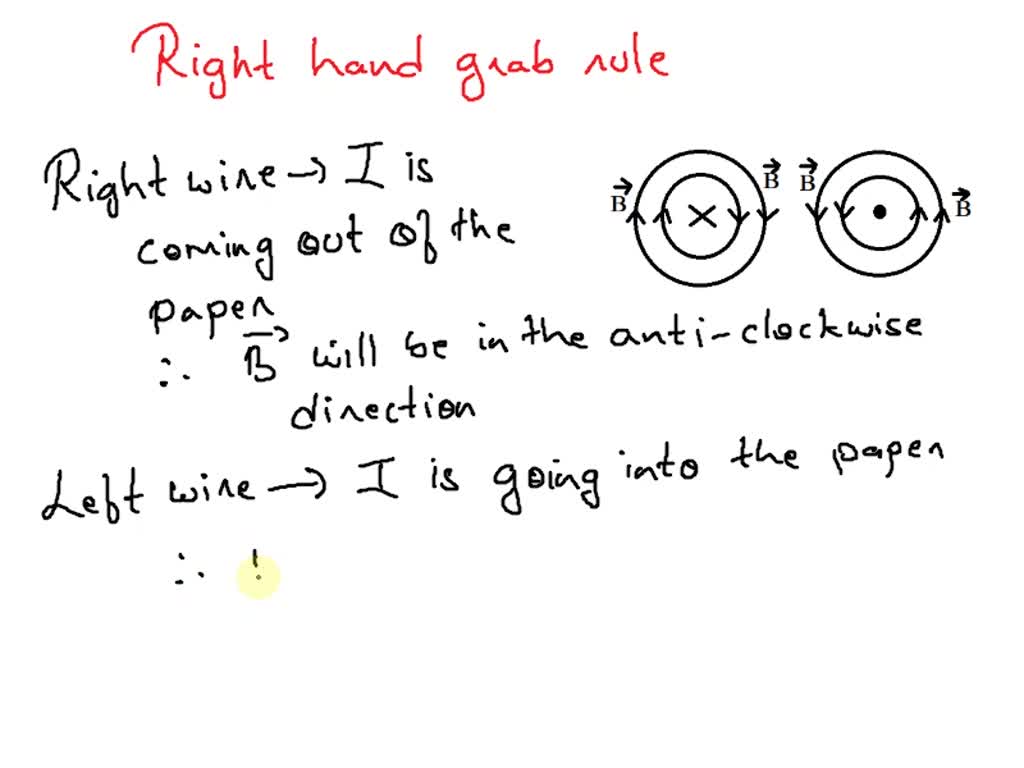 Right hand grab rule
Right wire → I is
coming out of the
paper
∴ B⃗ will be in the anti-clockwise
direction
Left wire → I is going into the paper
∴
B⃗ B⃗ B⃗ B⃗